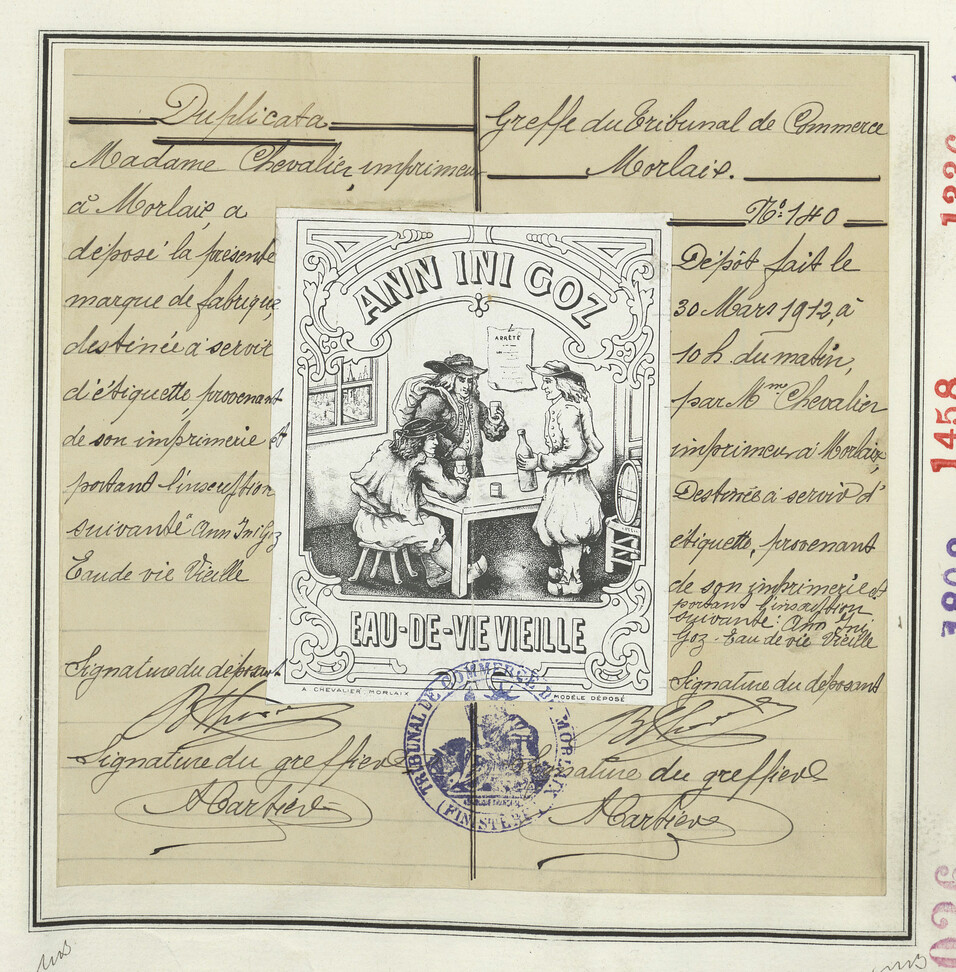 Duplicata
Madame Chevalier, imprimeur
à Morlaix, a
déposé la présente
marque de fabrique,
destinée à servir
d'étiquette, provenant
de son imprimerie et
portant l'inscription
suivante "Ann Ini Goz
Eau de vie Vieille
Signature du déposant
Signature du greffier
Greffe du Tribunal de Commerce
Morlaix.
No: 140
Dépôt fait le
30 Mars 1912, à
10 h. du matin,
par Mme Chevalier
imprimeur à Morlaix,
Destinée à servir d'
étiquette, provenant
de son imprimerie et
portant l'inscription
suivante: Ann Ini
Goz - Eau de vie Vieille
Signature du déposant
Signature du greffier
ANN INI GOZ
ARRÊTÉ
EAU-DE-VIE VIEILLE
A CHEVALIER MORLAIX
MODÈLE DÉPOSÉ
TRIBUNAL DE COMMERCE DE MORLAIX
(FINISTÈRE)
1458